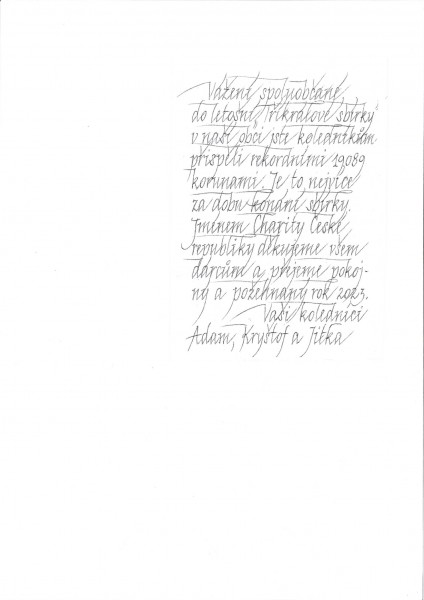 Vážení spoluobčané,
do letošní "Tříkrálové sbírky"
v naší obci jste koledníkům
přispěli rekordními 19089
korunami. Je to nejvíce
za dobu konání sbírky.
Jménem Charity České
republiky děkujeme všem
dárcům a přejeme pokoj-
ný a požehnaný rok 2023.
Vaši koledníci
Adam, Kryštof a Jitka